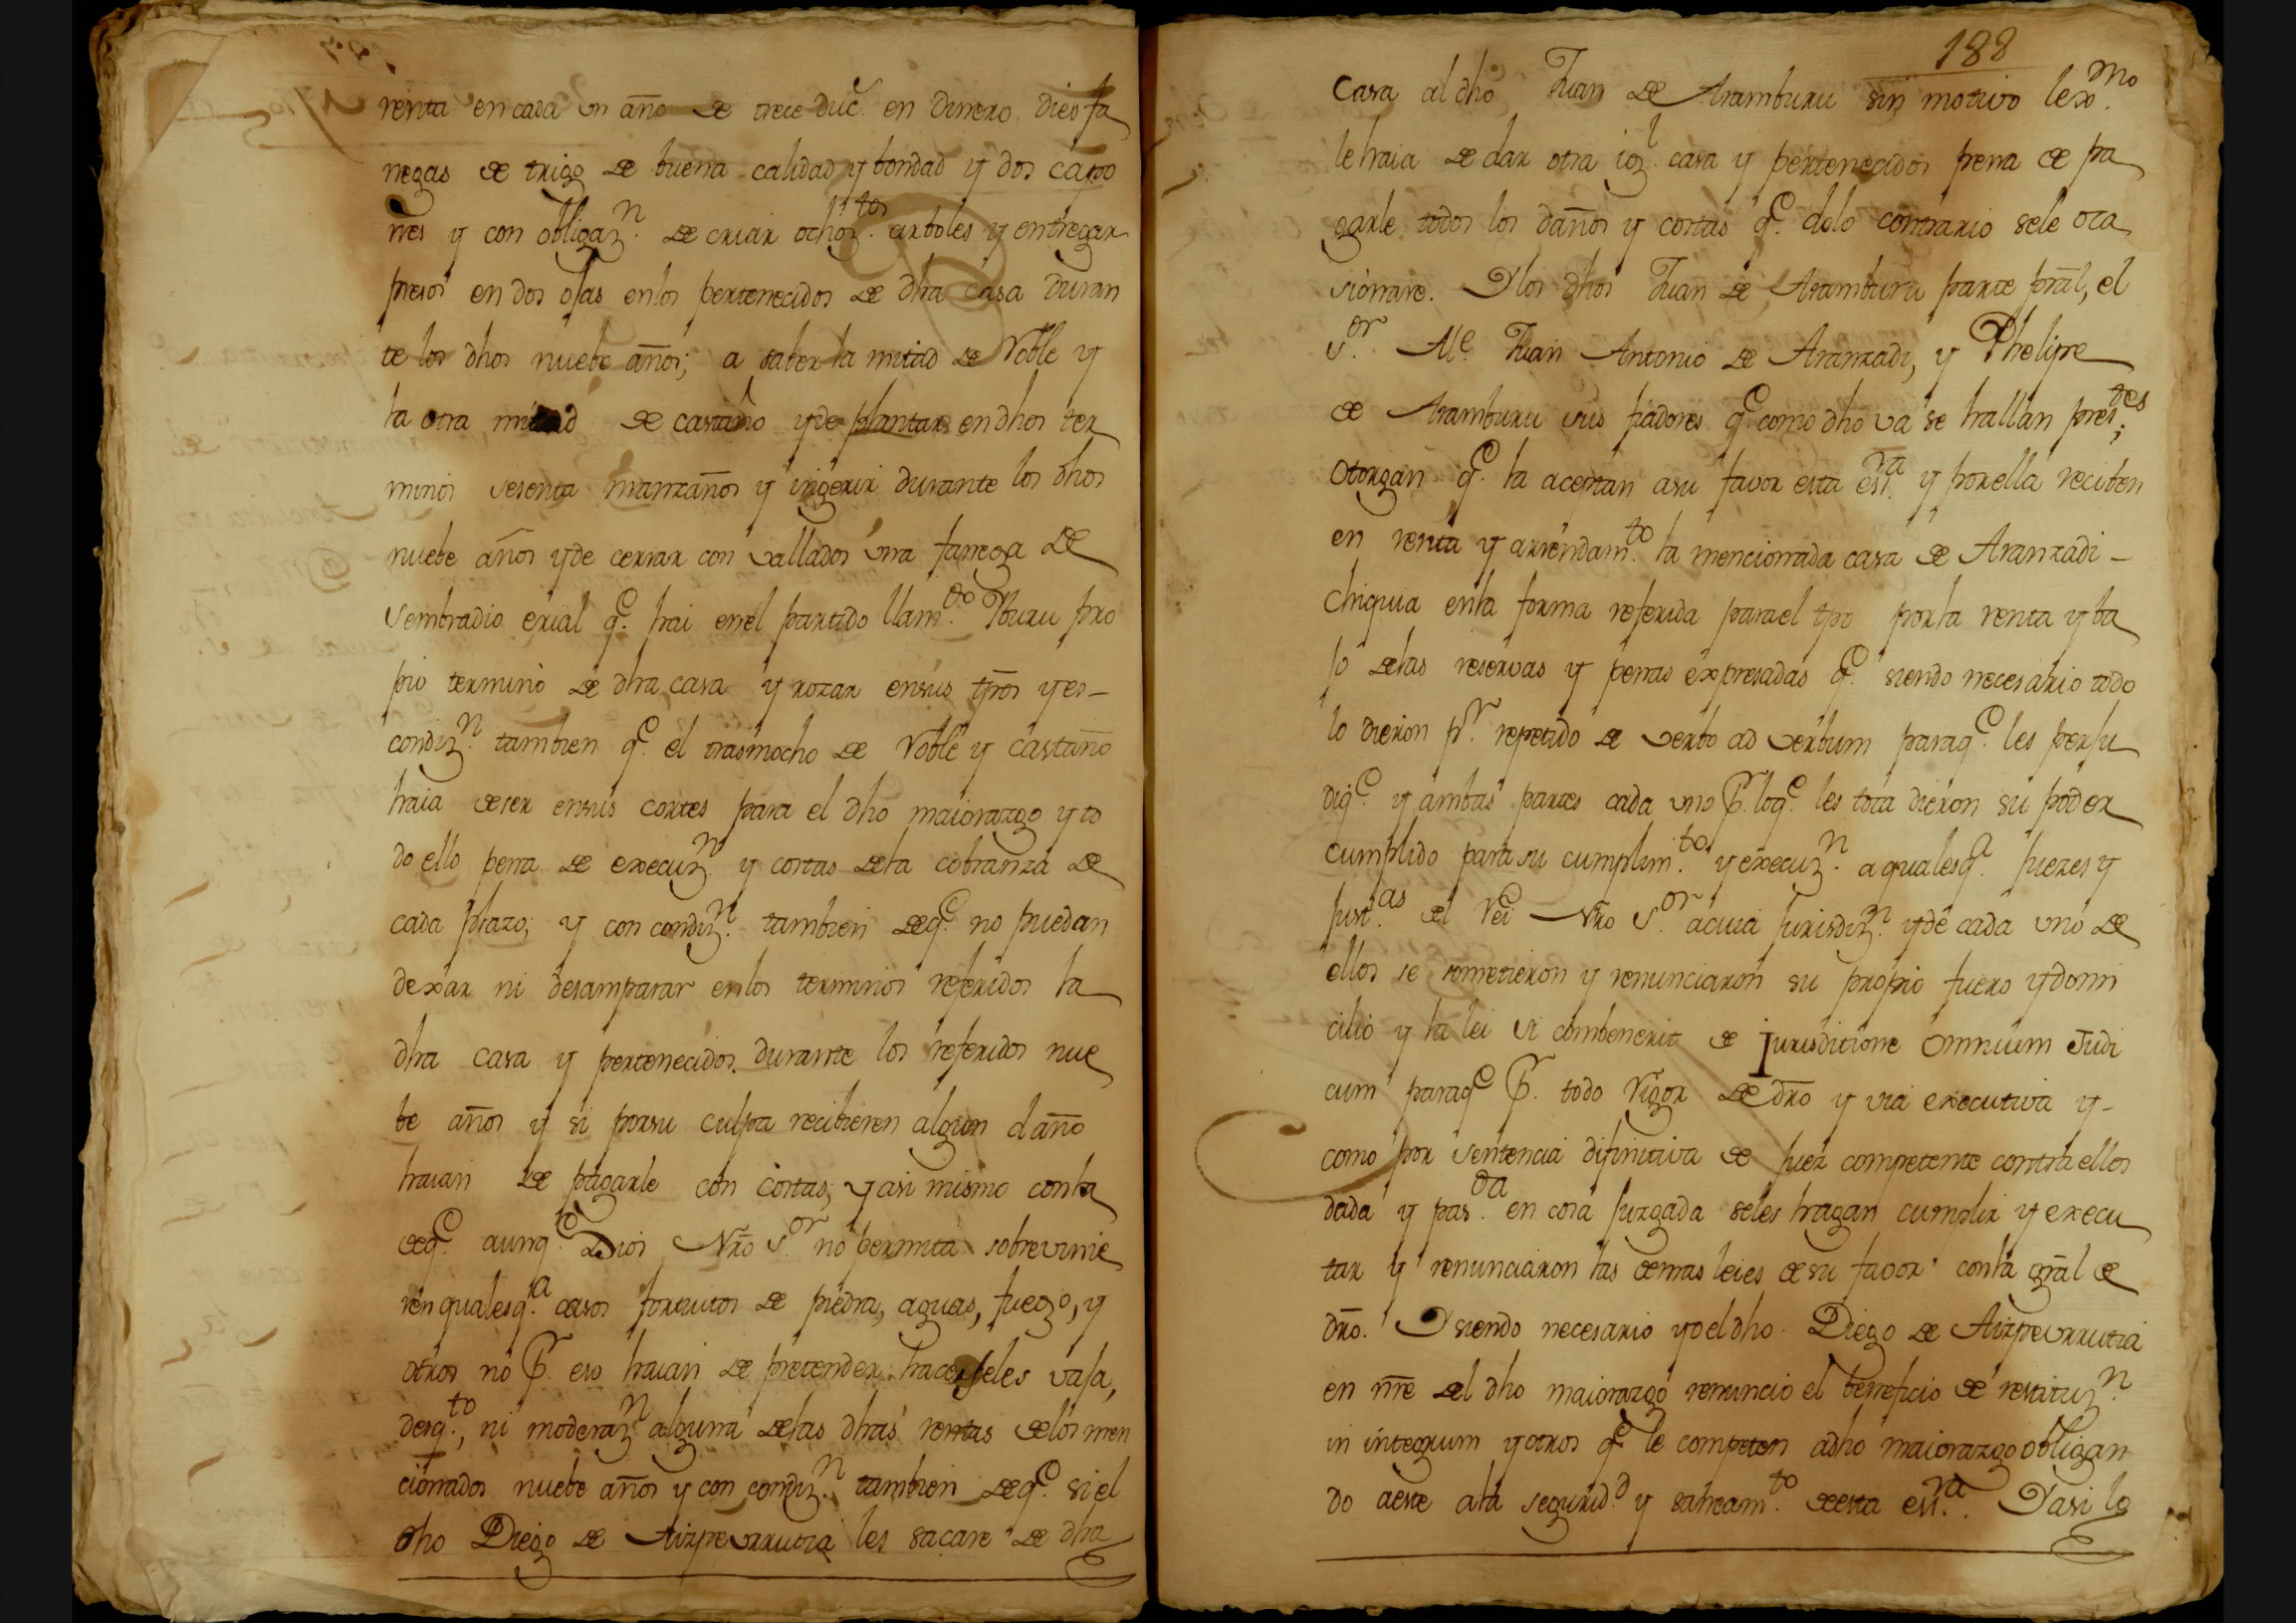 renta en cada un año de trece duc. en dinero dies fa
negas de trigo de buena calidad y bondad y dos capo
nes y con obligazn. de criar ochoztos. arboles y entregar
presos en dos ojas en los pertenecidos de dha casa duran
te los dhos nuebe años; a saber la mitad de Roble y
la otra mitad de castaño y de plantar en dhos ter
minos sesenta manzanos y ingerir durante los dhos
nuebe años y de cerrar con vallados una fanega de
sembradio erial qe. hai en el partido llamdo. Yburu pro
pio termino de dha casa y rozar en sus tpos y es-
condizn. tambien qe. el trasmocho de Roble y castaño
haia de ser en sus cortes para el dho maiorazgo y to
do ello pena de execuzn. y costas de la cobranza de
cada plazo; y con condizn. tambien de qe. no puedan
dexar ni desamparar en los terminos referidos la
dha casa y pertenecidos durante los referidos nue
be años y si por su culpa recibieren algun daño
haian de pagarle con costas; y asi mismo con la
de qe. aunqe. Dios Nro Sor. no permita sobrevinie
ren qualesqa. casos fortuitos de piedra, aguas, fuego, y
otros no P. eso haian de pretender hacerseles vaja,
desqto., ni moderazn. alguna de las dhas rentas de los men
cionados nuebe años y con condizn. tambien de qe. si el
dho Diego de Aizpeurrutia les sacare de dha
188
Casa al dho Juan de Aramburu sin motivo lexmo.
le haia de dar otra iogl. casa y pertenecidos pena de pa
garle todos los daños y costas qe. de lo contrario se le oca
sionare. Y los dhos Juan de Aramburu parte pral, el
Sor. Me. Juan Antonio de Aranzadi, y Phelipe
de Aramburu sus fiadores qe. como dho va se hallan prestes;
Otorgan qe. la aceptan a su favor esta esra. y por ella reciben
en renta y arrendamto. la mencionada casa de Aranzadi-
chiquia en la forma referida para el tpo por la renta y ba
jo de las reservas y penas expresadas qe. siendo necesario todo
lo dieron pr. repetido de verbo ad verbum para qe. les perju
diqe. y ambas partes cada uno P. lo qe. les toca dieron su poder
cumplido para su cumplimto. y execuzn. a qualesqa. juezes y
justas. del Rei Nro Sor. a cuia jurisdizn. y de cada uno de
ellos se sometieron y renunciaron su propio fuero y domi
cilio y la lei si combenerit de Jurisditione Omnium Judi
cum para qe P. todo Rigor de dro y via executiva y-
como por sentencia difinitiva de juez competente contra ellos
dada y pasda. en cosa juzgada se les hagan cumplir y execu
tar y renunciaron las demas leies de su favor con la gral de
dro. Y siendo necesario yo el dho Diego de Aizpeurrutia
en nre del dho maiorazgo renuncio el beneficio de restituzn.
in integrum y otros qe. le competen a dho maiorazgo obligan
do a este a la seguridd. y saneamto. de esta esra. Y asi lo